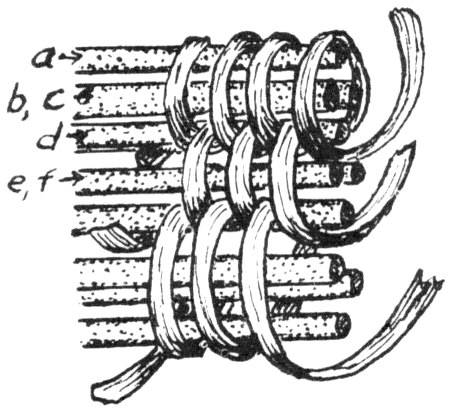 a
b, c
d
e, f